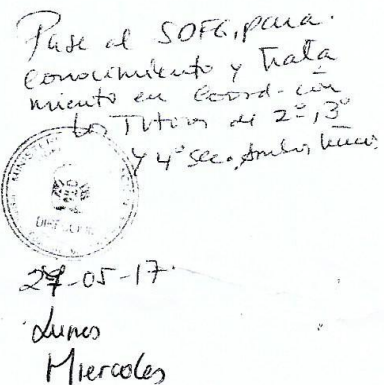 Pase al SOFG, para.
conocimiento y trata
miento en coord. con
los Tutores de 2º, 3º
y 4º sec. Ambos
MINISTERIO
27-05-17.
Lunes
Miercoles